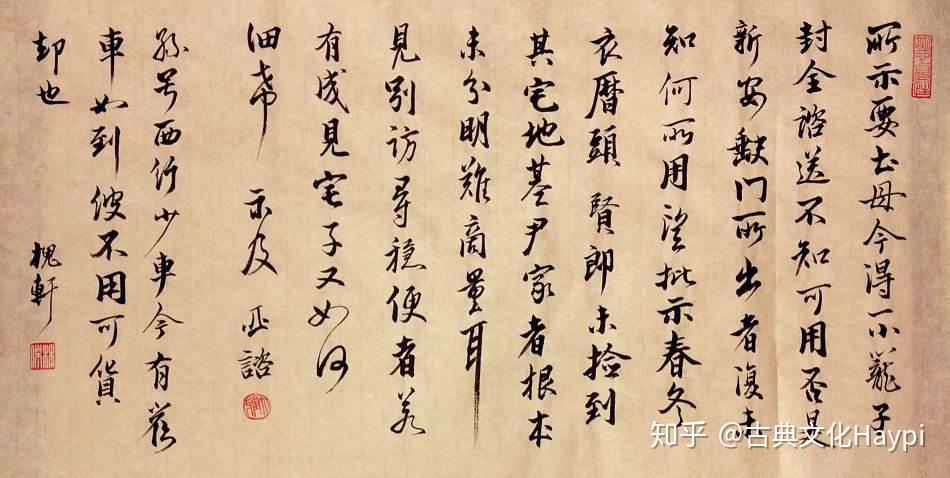 所示要土母今得一小籠子
封全諮送不知可用否是
新安缺門所出者復未
知何所用望批示春冬
衣曆頭 賢郎未撿到
其宅地基尹家者根本
未分明難商量耳
見別訪尋穩便者若
有成見宅子又如何
細希 示及 正諮
孫号西行少車今有舊
車如到彼不用可貨
却也 槐軒
知乎 @古典文化Haypi